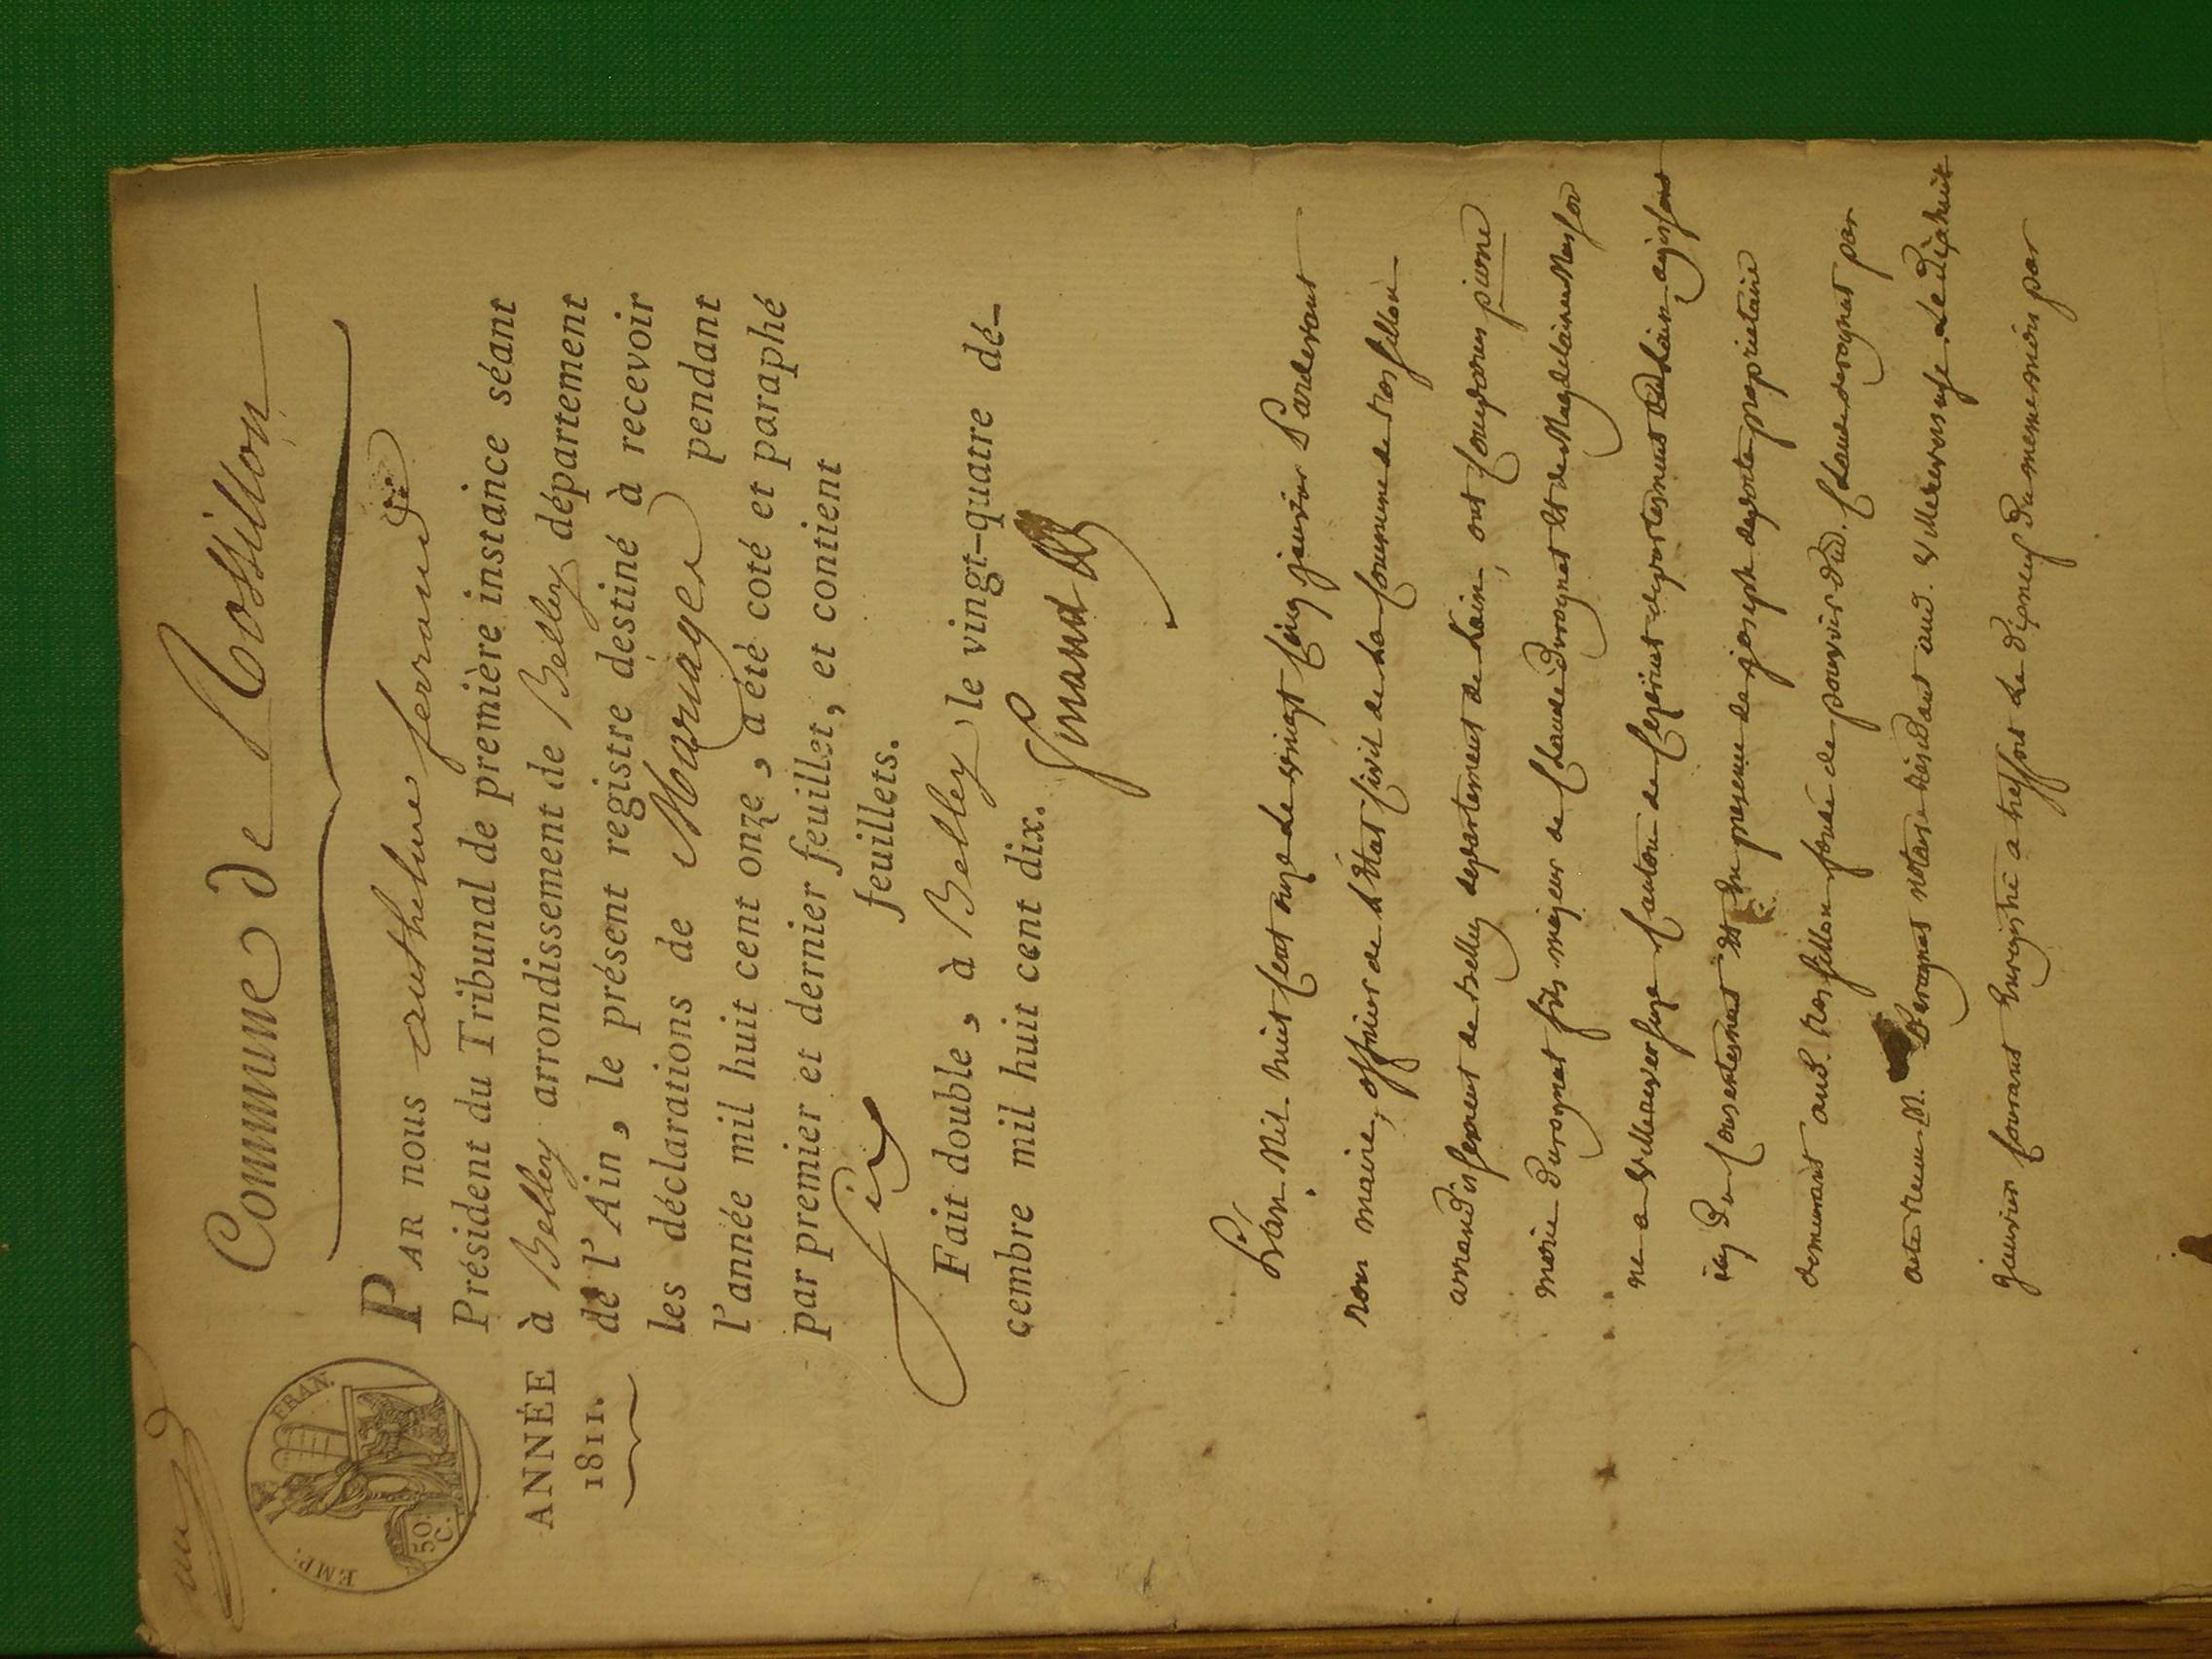 Commune de Rossillon
EMP. FRAN.
50. C.
ANNÉE
1811.
PAR nous anthelme ferrand
Président du Tribunal de première instance séant
à Belley arrondissement de Belley département
de l'Ain, le présent registre destiné à recevoir
les déclarations de Mariages pendant
l'année mil huit cent onze, a été coté et paraphé
par premier et dernier feuillet, et contient
Six feuillets.
Fait double, à Belley le vingt-quatre dé-
cembre mil huit cent dix.
L'an Mil huit Cent onze Le vingt Cinq janvier Pardevant
nous maire, officier de L'Etat Civil de La Commune de Rossillon
arrondissement de Belley departement de Lain, ont Comparus pierre
marie Duvognat fils majeur de Claude Duvognat et de Magdelaine
ne a Villereversure Canton de Ceyzeriat departement De Lain agissant
du Consentement et En presence de joseph proprietaire
demeurant aud. Rossillon fondé de pouvoir dud. Claude par
acte recu M. notaire Résidant aud. Villereversure Le Dix huit
janvier Courant Enregistré a treffort Le Dix neuf Du meme mois par